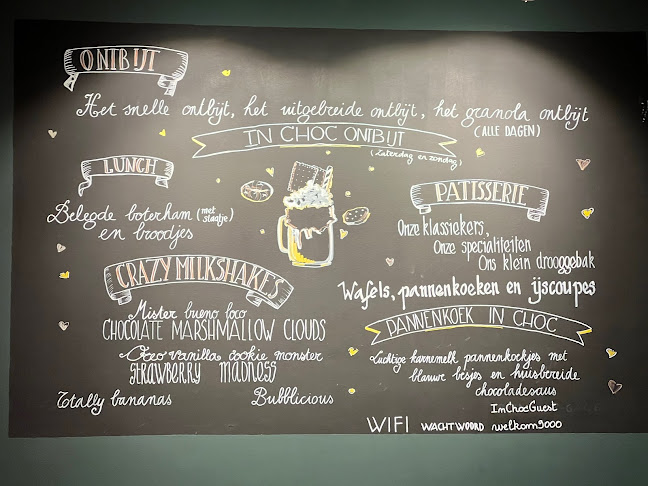 ONTBIJT
Het snelle ontbijt, het uitgebreide ontbijt, het granola ontbijt
(ALLE DAGEN)
IN CHOC ONTBIJT
(Zaterdag en zondag)
LUNCH
Belegde boterham (met slaatje)
en broodjes
CRAZY MILKSHAKES
Mister bueno loco
CHOCOLATE MARSHMALLOW CLOUDS
Oreo vanilla cookie monster
STRAWBERRY MADNESS
Totally bananas
Bubblicious
PATISSERIE
Onze klassiekers,
Onze specialiteiten
Ons klein drooggebak
Wafels, pannenkoeken en ijscoupes
PANNENKOEK IN CHOC
Luchtige karnemelk pannenkoekjes met
blauwe besjes en huisbereide
chocoladesaus
ImChocGuest
WIFI WACHTWOORD welkom9000